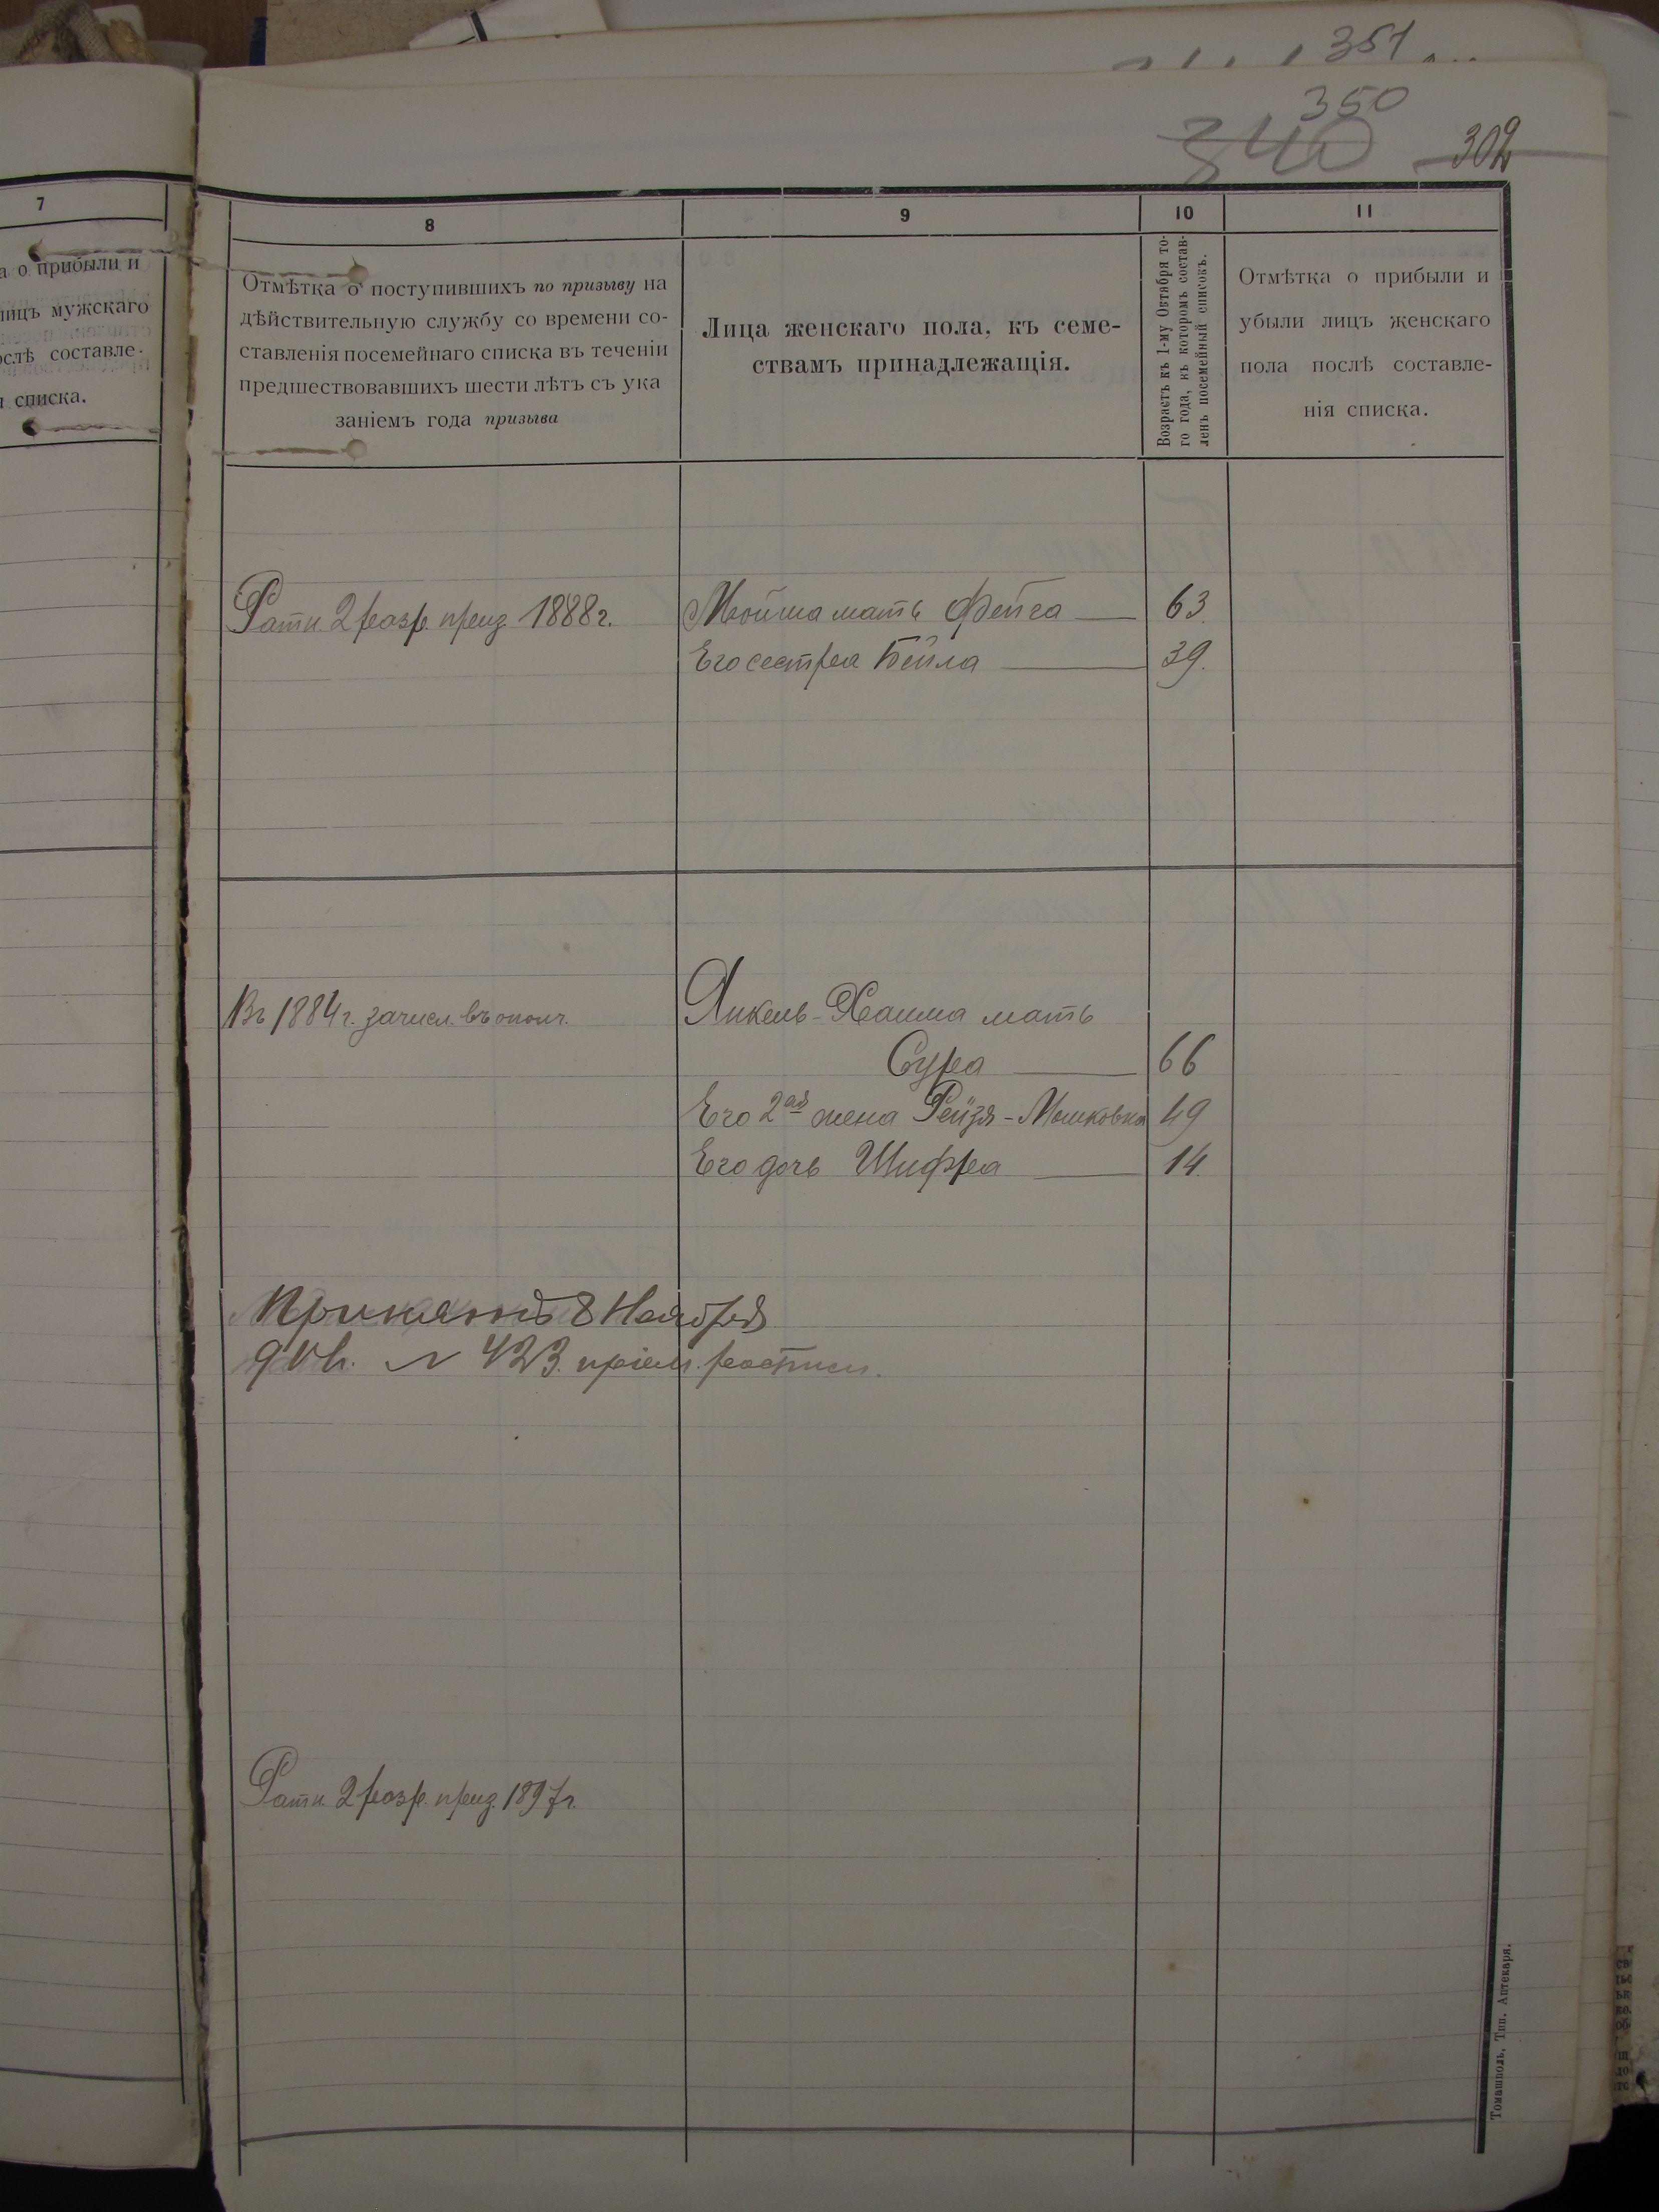 351
350
340
302
7
а о прибыли и
лицъ мужскаго
ослѣ составле-
я списка.
8
9
10
11
Отмѣтка о поступившихъ по призыву на
дѣйствительную службу со времени со-
ставленія посемейнаго списка въ теченіи
предшествовавшихъ шести лѣтъ съ ука
заніемъ года призыва
Лица женскаго пола, къ семе-
ствамъ принадлежащія.
Возрастъ къ 1-му Октября то-
го года, къ которомъ состав-
ленъ посемейный списокъ.
Отмѣтка о прибыли и
убыли лицъ женскаго
пола послѣ составле-
нія списка.
Ратн. 2 разр. приз. 1888 г.
Мойша мать Фейга 63.
Его сестра Бейла 39.
Въ 1884 г. зачисл. въ ополч.
Янкель-Хаима мать
Сура 66
Его 2ая жена Рейзя-Мошковна 49
Его дочь Шифра 14.
Принятъ 8 Ноября
№ 423. пріем. росписи.
Ратн. 2 разр. приз. 1897 г.
Томашполь, Тип. Аптекаря.